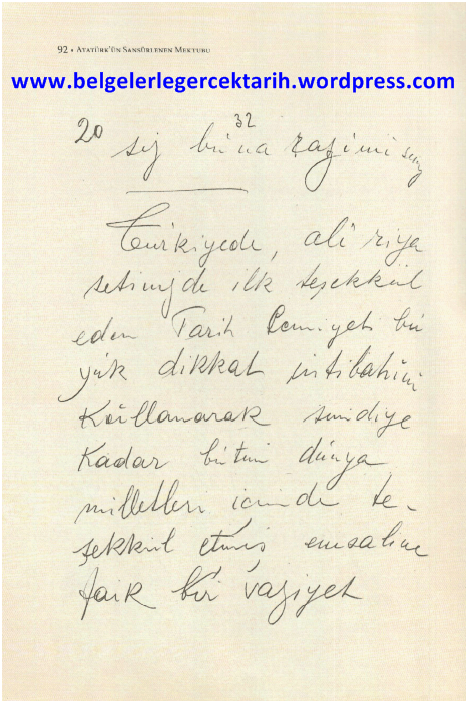 92 • ATATÜRK'ÜN SANSÜRLENEN MEKTUBU
www.belgelerlegercektarih.wordpress.com
32
20 siz buna razı mısınız
Türkiyede, ali riya
setinizde ilk teşekkül
eden Tarih Cemiyeti bü
yük dikkat intibahını
Kullanarak şimdiye
Kadar bütün dünya
milletleri içinde te-
şekkül etmiş emsaline
faik bir vaziyet